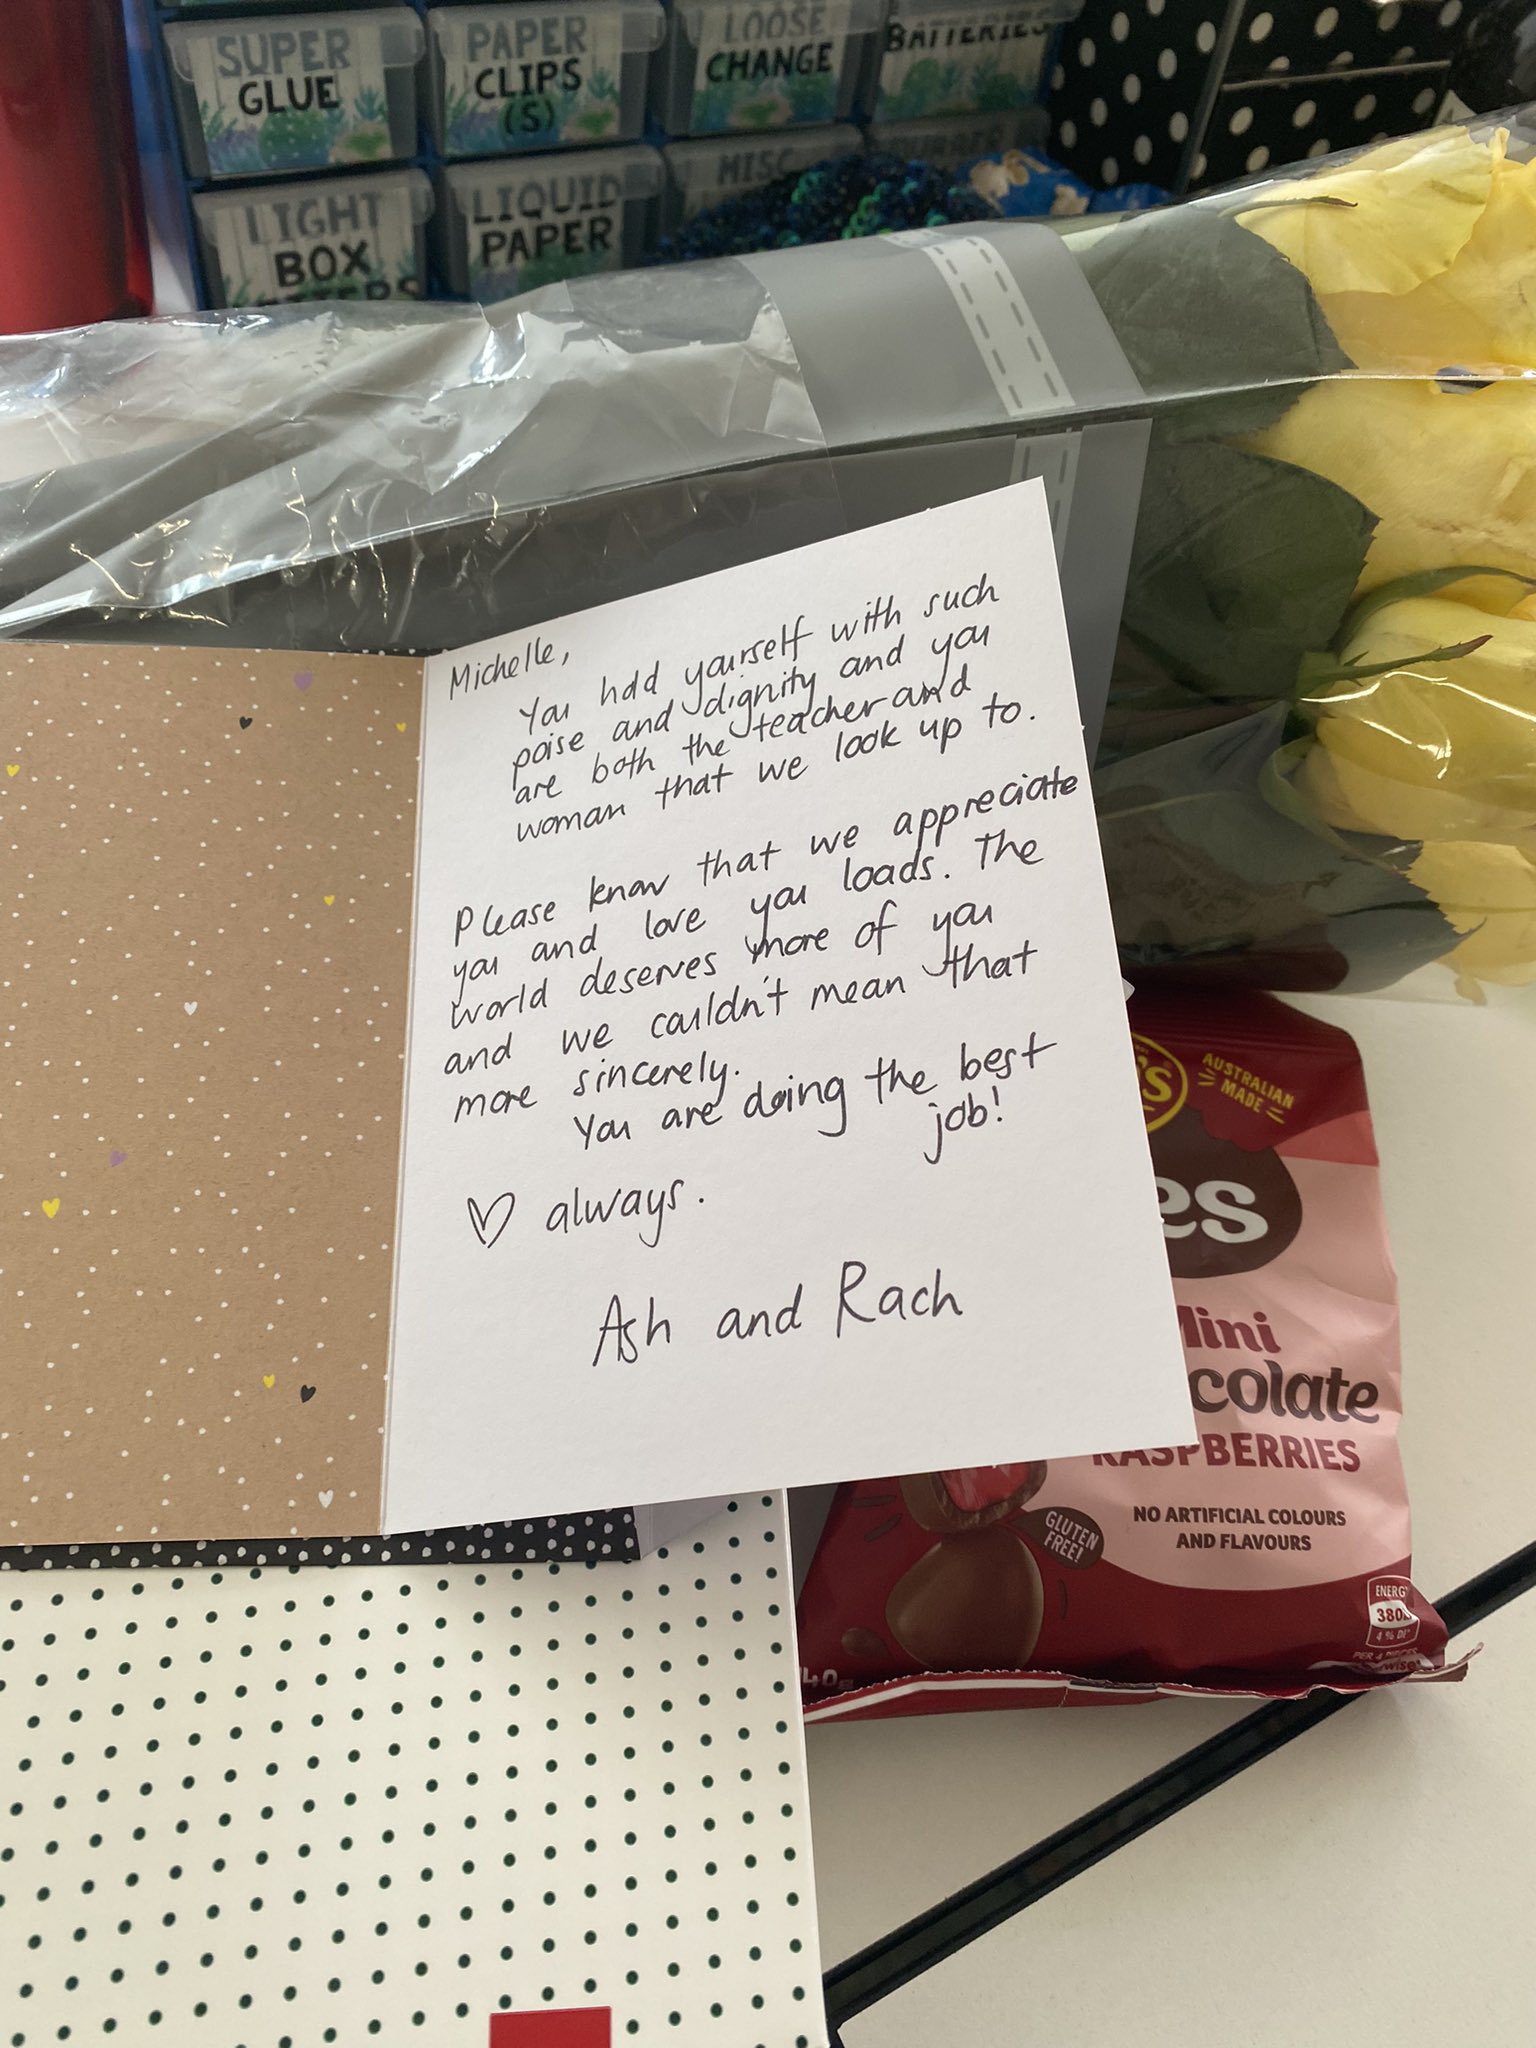 SUPER
GLUE
PAPER
CLIPS
(S)
LOOSE
CHANGE
BATTERIES
LIGHT
BOX
LIQUID
PAPER
MISC
Michelle,
You hold yourself with such
poise and dignity and you
are both the teacher and
woman that we look up to.
Please know that we appreciate
you and love you loads. The
world deserves more of you
and we couldn't mean that
more sincerely.
You are doing the best
job!
♡ always.
Ash and Rach
AUSTRALIAN
MADE
es
Mini
colate
RASPBERRIES
NO ARTIFICIAL COLOURS
AND FLAVOURS
GLUTEN
FREE!
ENERGY
380
4% DI*